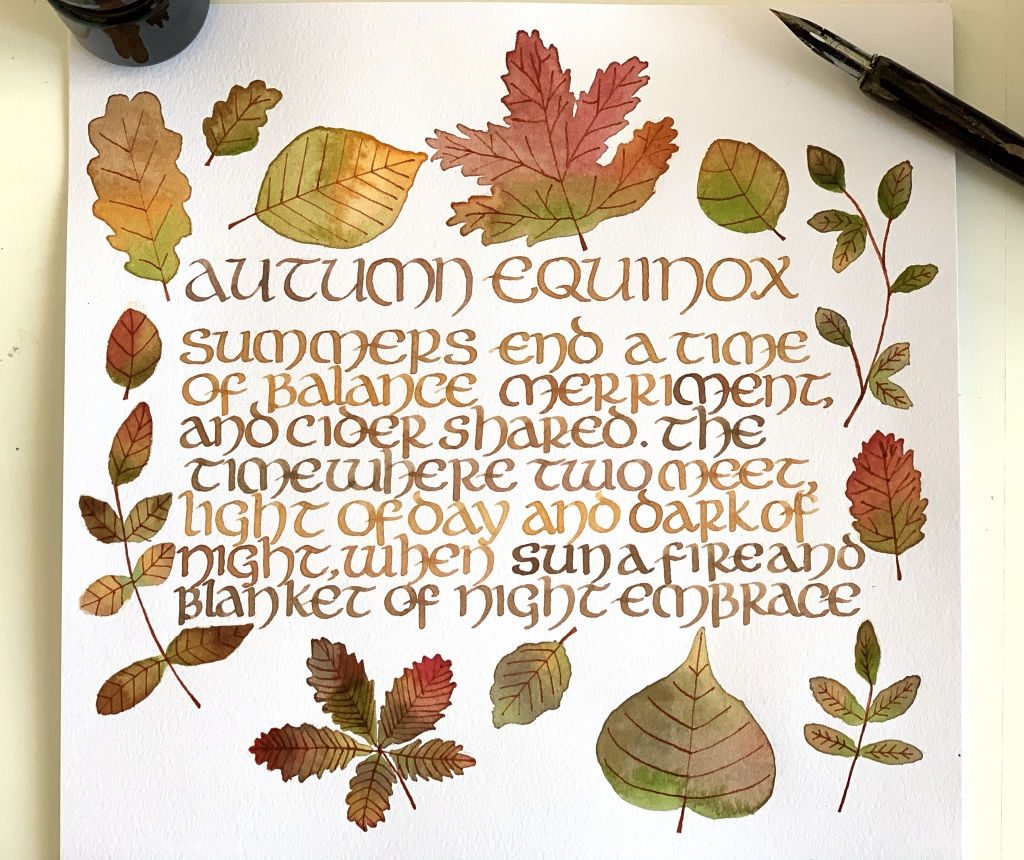 AUTUMN EQUINOX
SUMMERS END A TIME
OF BALANCE MERRIMENT,
AND CIDER SHARED. THE
TIME WHERE TWO MEET,
LIGHT OF DAY AND DARK OF
NIGHT, WHEN SUN A FIRE AND
BLANKET OF NIGHT EMBRACE